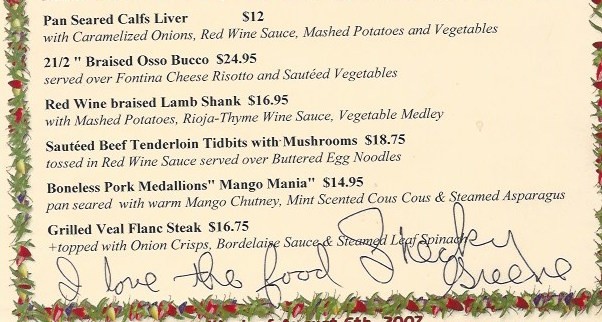 Pan Seared Calfs Liver $12
with Caramelized Onions, Red Wine Sauce, Mashed Potatoes and Vegetables
21/2 " Braised Osso Bucco $24.95
served over Fontina Cheese Risotto and Sautéed Vegetables
Red Wine braised Lamb Shank $16.95
with Mashed Potatoes, Rioja-Thyme Wine Sauce, Vegetable Medley
Sautéed Beef Tenderloin Tidbits with Mushrooms $18.75
tossed in Red Wine Sauce served over Buttered Egg Noodles
Boneless Pork Medallions" Mango Mania" $14.95
pan seared with warm Mango Chutney, Mint Scented Cous Cous & Steamed Asparagus
Grilled Veal Flanc Steak $16.75
+topped with Onion Crisps, Bordelaise Sauce & Steamed Leaf Spinach
I love the food Shecky Greene
August 6th, 2007